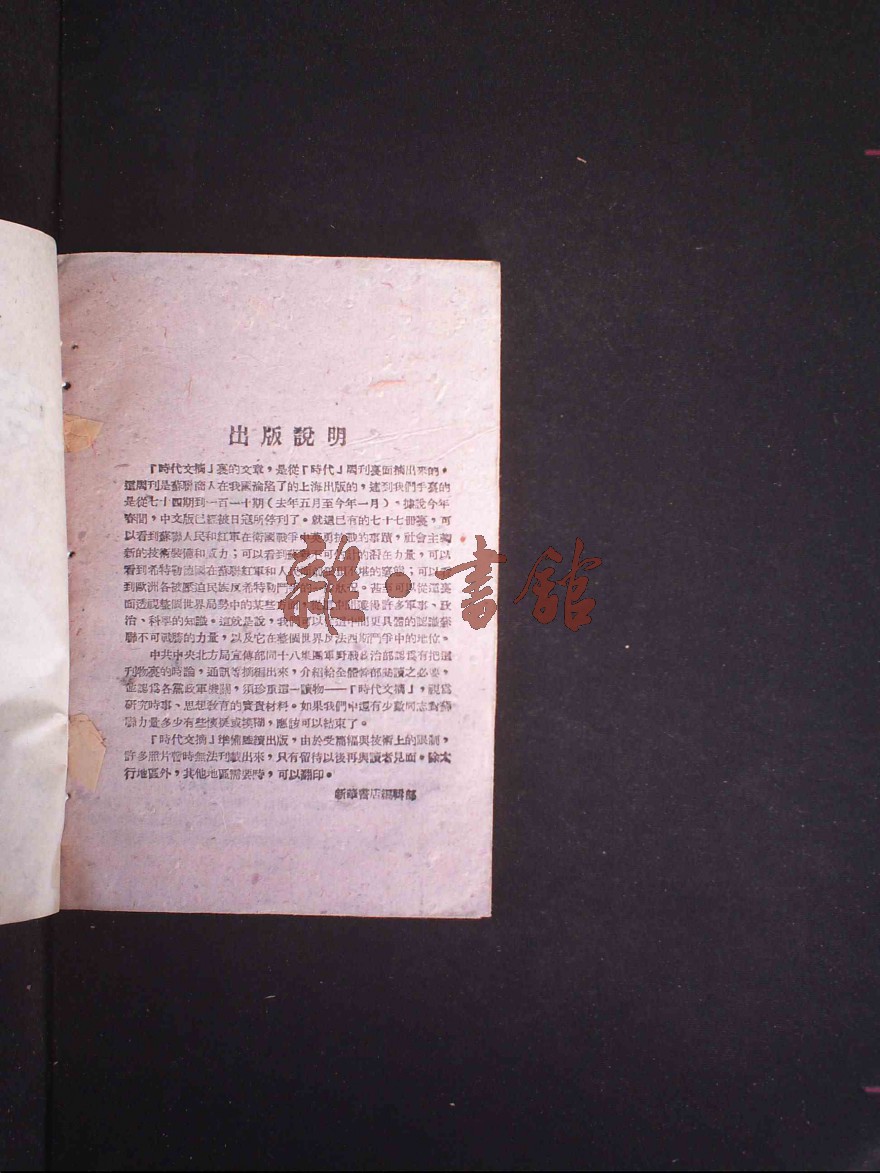 出版說明
『時代文摘』裏的文章，是從『時代』周刊裏面摘出來的。
這周刊是蘇聯商人在我國淪陷了的上海出版的，達到我們手裏的
是從七十四期到一百一十期（去年五月至今年一月），據說今年
春間，中文版已經被日寇所停刊了。就這已有的七十七冊裏，可
以看到蘇聯人民和紅軍在衛國戰爭中英勇抗戰的事蹟，社會主義
新的技術裝備和威力；可以看到蘇聯不可估計的潛在力量，可以
看到希特勒德國在蘇聯紅軍和人民面前的窘態；可以看
到歐洲各被壓迫民族反希特勒鬥爭的狀況。甚至可以從這裏
面透視整個世界局勢中的某些方面，獲得許多軍事、政
治、科學的知識。這就是說，我們可以從這中出更具體的認識蘇
聯不可戰勝的力量，以及它在整個世界反法西斯鬥爭中的地位。
中共中央北方局宣傳部同十八集團軍野戰政治部認爲有把這
刊物裏的時論，通訊等摘編出來，介紹給全體幹部閱讀之必要，
並認爲各黨政軍機關，須珍重這一讀物——『時代文摘』，視爲
研究時事、思想教育的寶貴材料。如果我們中還有少數同志對蘇
聯力量多少有些懷疑或模糊，應該可以結束了。
『時代文摘』準備陸續出版，由於受篇幅與技術上的限制，
許多照片暫時無法刊載出來，只有留待以後再與讀者見面。除太
行地區外，其他地區需要時，可以翻印。
新華書店編輯部
雜·書館